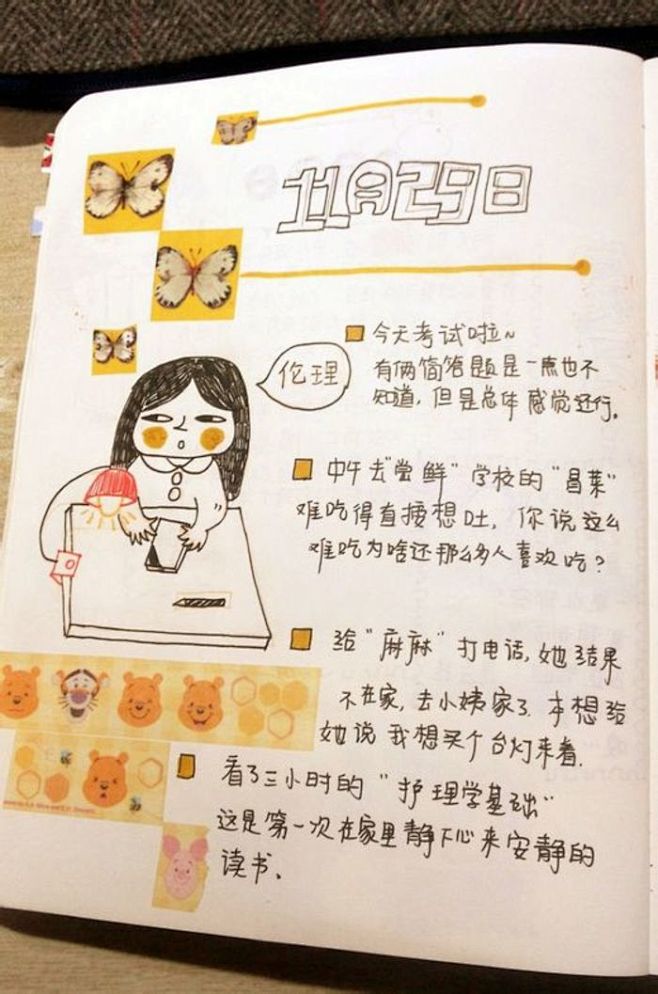 11月29日
今天考试啦~
有俩简答题是一点也不
知道,但是总体感觉还行。
伦理
中午去"尝鲜"学校的"冒菜"
难吃得直接想吐,你说这么
难吃为啥还那么多人喜欢吃?
给"麻麻"打电话,她结果
不在家,去小姨家了.本想给
她说我想买个台灯来着.
看了三小时的"护理学基础"
这是第一次在家里静下心来安静的
读书、